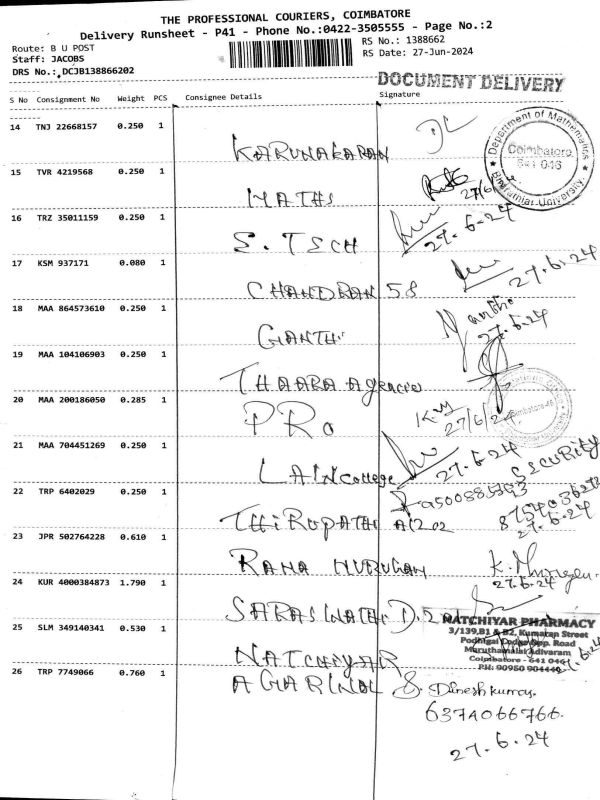 THE PROFESSIONAL COURIERS, COIMBATORE
Delivery Runsheet - P41 - Phone No.:0422-3505555 - Page No.:2
Route: B U POST
RS No.: 1388662
Staff: JACOBS
RS Date: 27-Jun-2024
DRS No.: DCJB138866202
DOCUMENT DELIVERY
S No Consignment No Weight PCS Consignee Details Signature
14 TNJ 22668157 0.250 1
KARUNAKARAN
Department of Mathematics
Coimbatore
641 046
Bharathiar University
15 TVR 4219568 0.250 1
MATHS
27/6/24
16 TRZ 35011159 0.250 1
S.TSCH
27.6.24
17 KSM 937171 0.080 1
CHANDRAN 58
27.6.24
18 MAA 864573610 0.250 1
GANTHI
27.6.24
19 MAA 104106903 0.250 1
THAARA Agencies
20 MAA 200186050 0.285 1
PRO
27/6/24
21 MAA 704451269 0.250 1
LAIN College
27.6.24
SECURITY
22 TRP 6402029 0.250 1
THIRUPATHI A/202
27.6.24
23 JPR 502764228 0.610 1
RAMA MURUGAN
K. Murugan
27.6.24
24 KUR 4000384873 1.790 1
SARASWATHI
25 SLM 349140341 0.530 1
NATCHIYAR
NATCHIYAR PHARMACY
3/139,B1 & B2, Kumaran Street
Podhigai Opp. Road
Maruthamalai Adivaram
Coimbatore - 641 046
27.6.24
26 TRP 7749066 0.760 1
AGARINOL
Dinesh kumar
637A066766
27.6.24